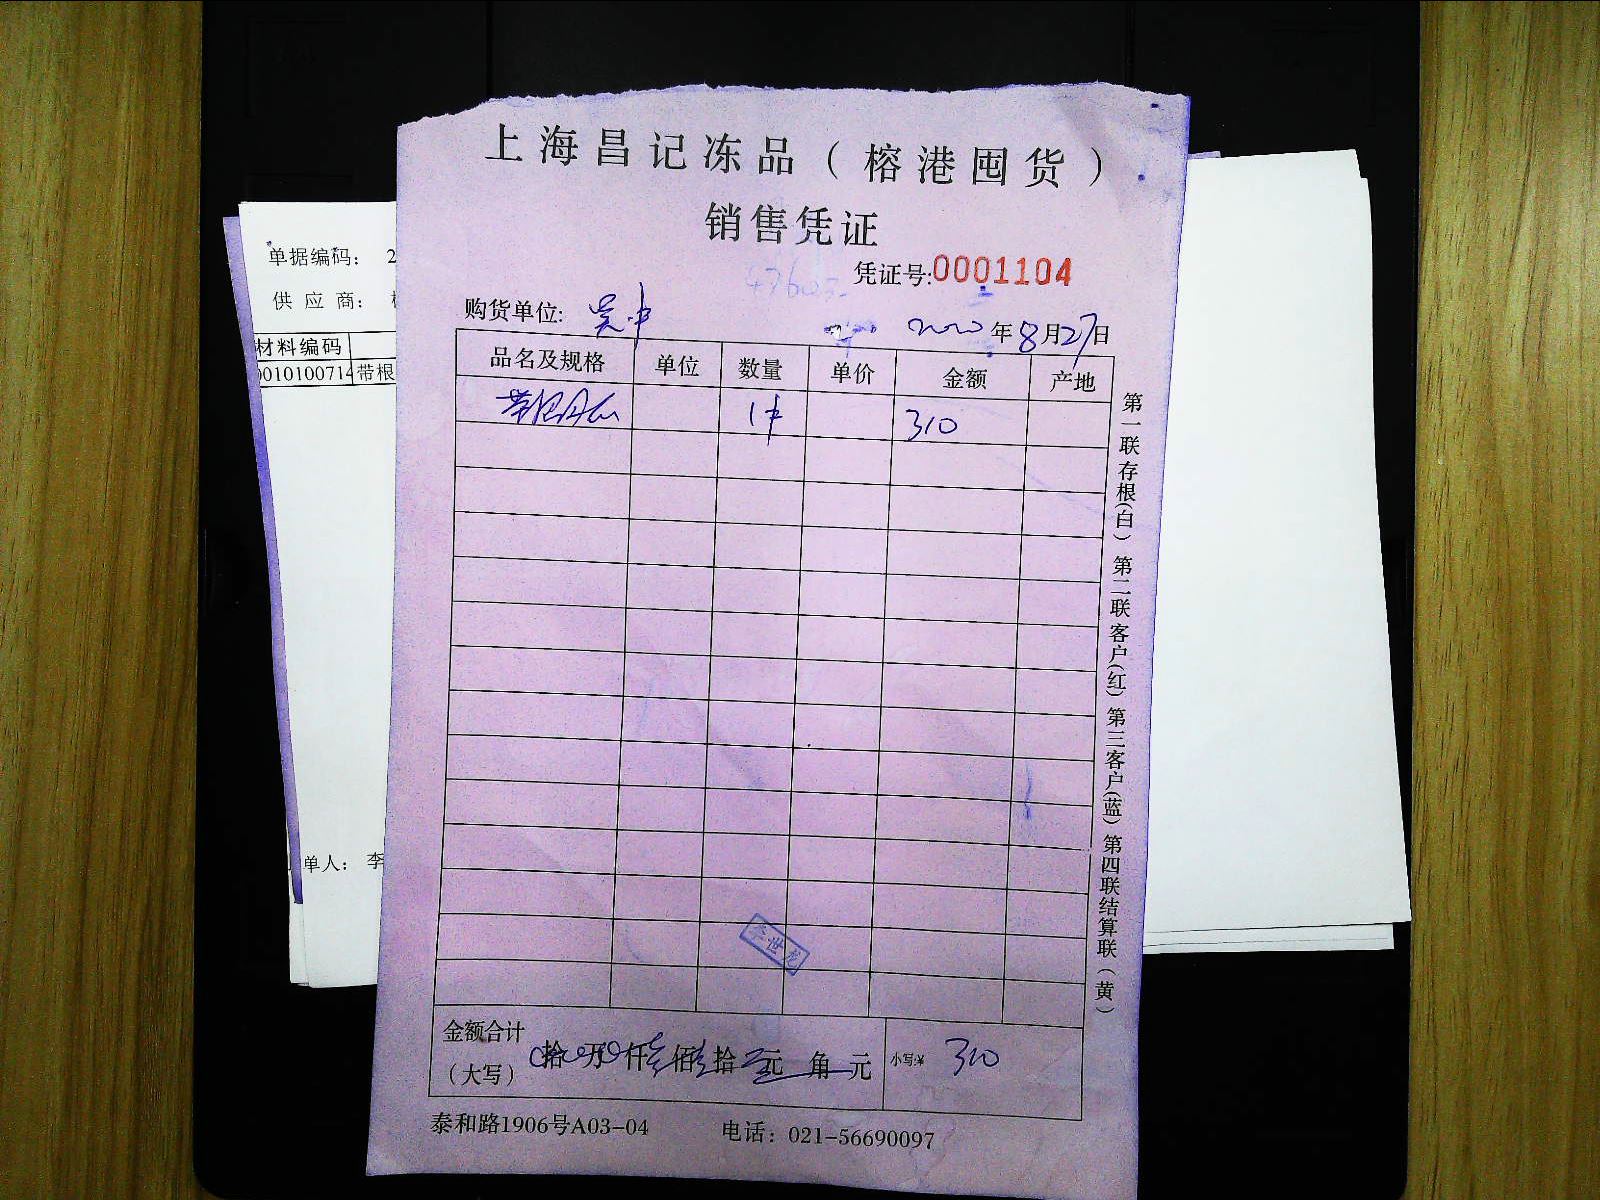 上海昌记冻品（榕港囤货）
销售凭证
凭证号:0001104
购货单位: 吴中
2020年8月27日
品名及规格 单位 数量 单价 金额 产地
1件 310
金额合计（大写） 拾 万 仟 叁佰 壹拾 元 角 元 小写:¥ 310
泰和路1906号A03-04 电话：021-56690097
第一联存根(白) 第二联客户(红) 第三客户(蓝) 第四联结算联(黄)
李世龙
单据编码： 2
供应商：
材料编码
0010100714 带根
单人： 李